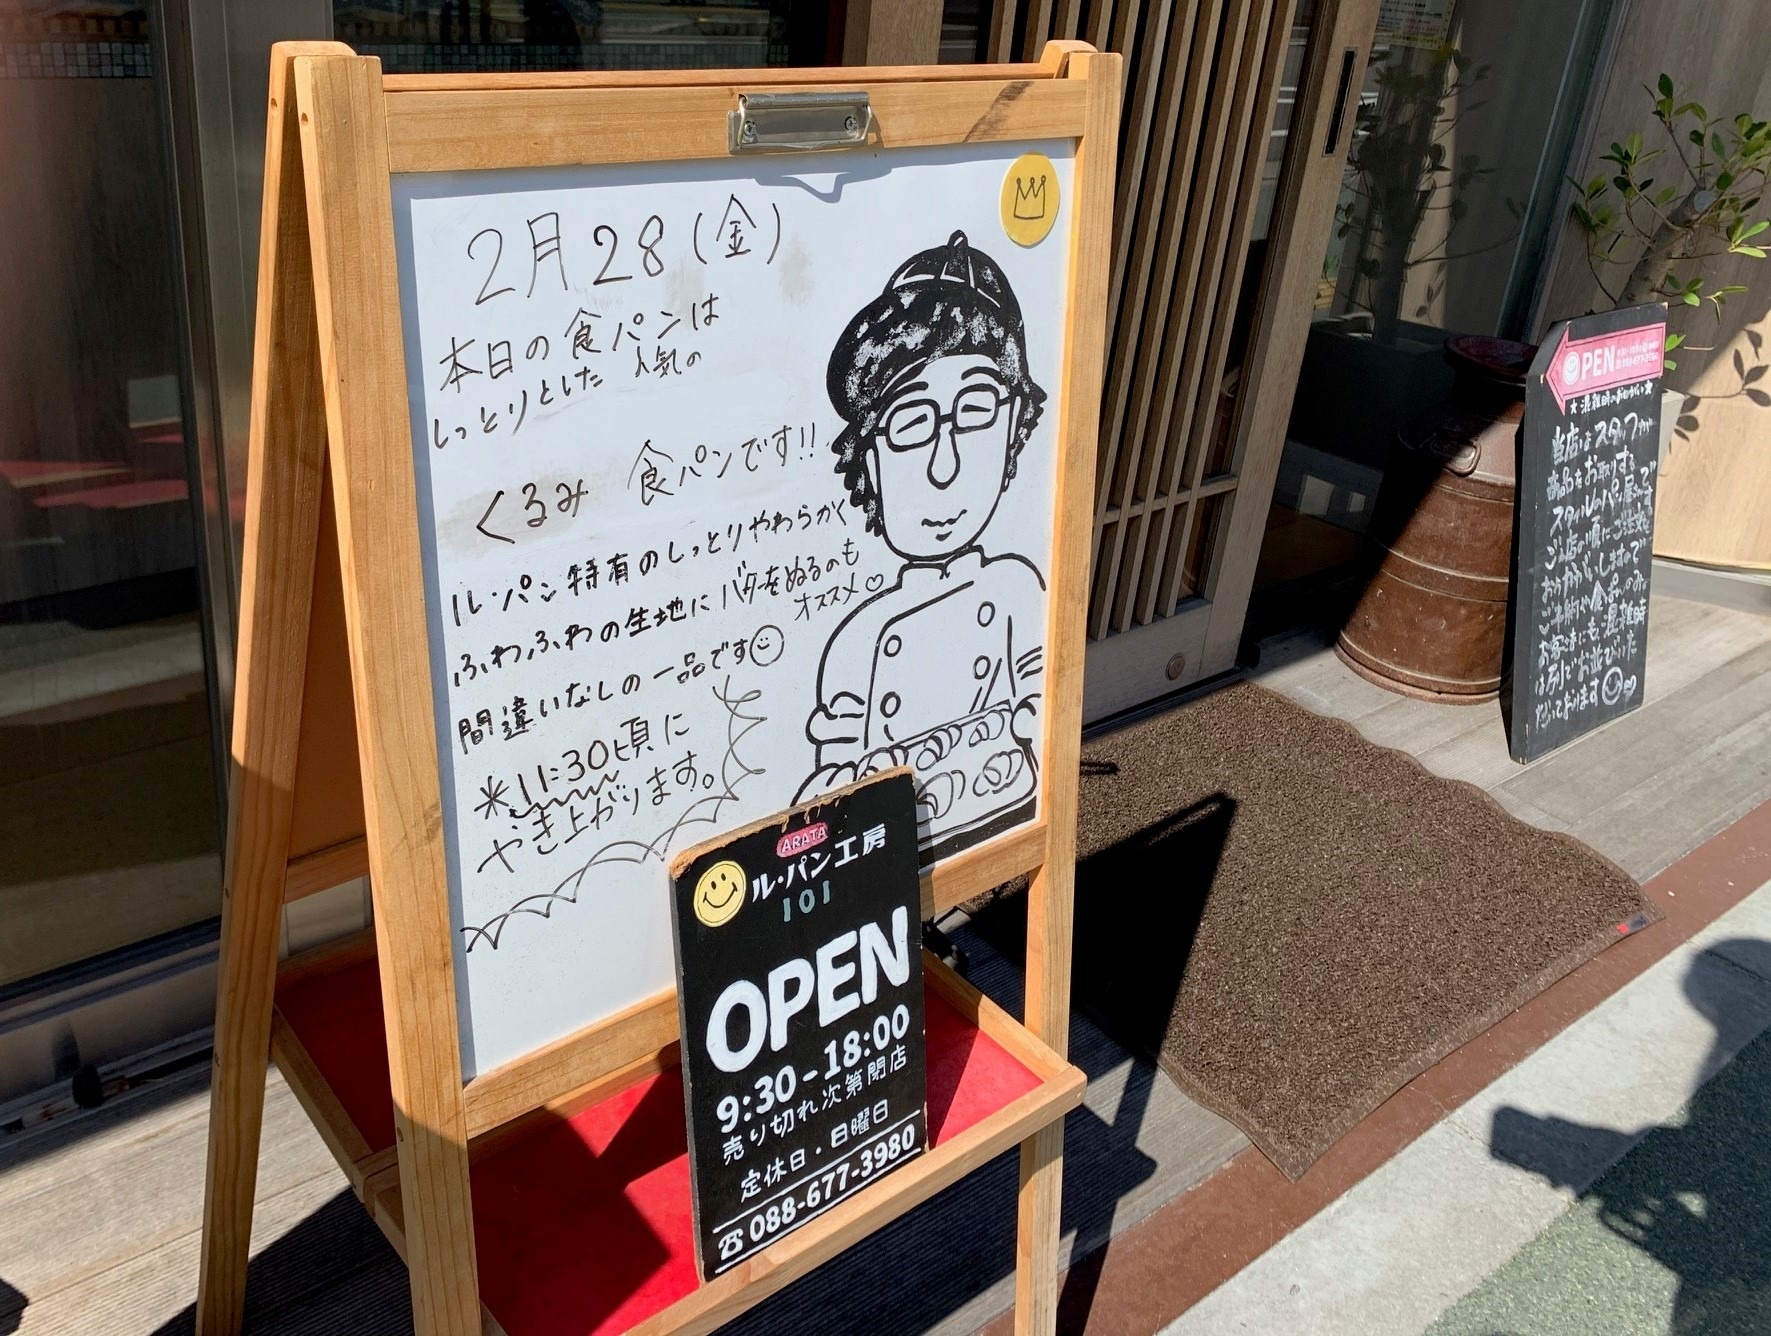 2月28(金)
本日の食パンは
しっとりとした 人気の
くるみ 食パンです!!
ル・パン特有のしっとりやわらかく
ふわふわの生地にバターをぬるのも
オススメ♡
間違いなしの一品です
*11:30頃に
やき上がります。
ARATA
ル・パン工房
101
OPEN
9:30-18:00
売り切れ次第閉店
定休日・日曜日
☎088-677-3980
OPEN
★混雑時のおねがい★
当店はスタッフが
商品をお取りする
スタイルのパン屋さんです
ご来店の順にご注文を
おうかがいしますので
ご予約や食パンのみの
お客さまにも混雑時
は列でお並びいた
だいております